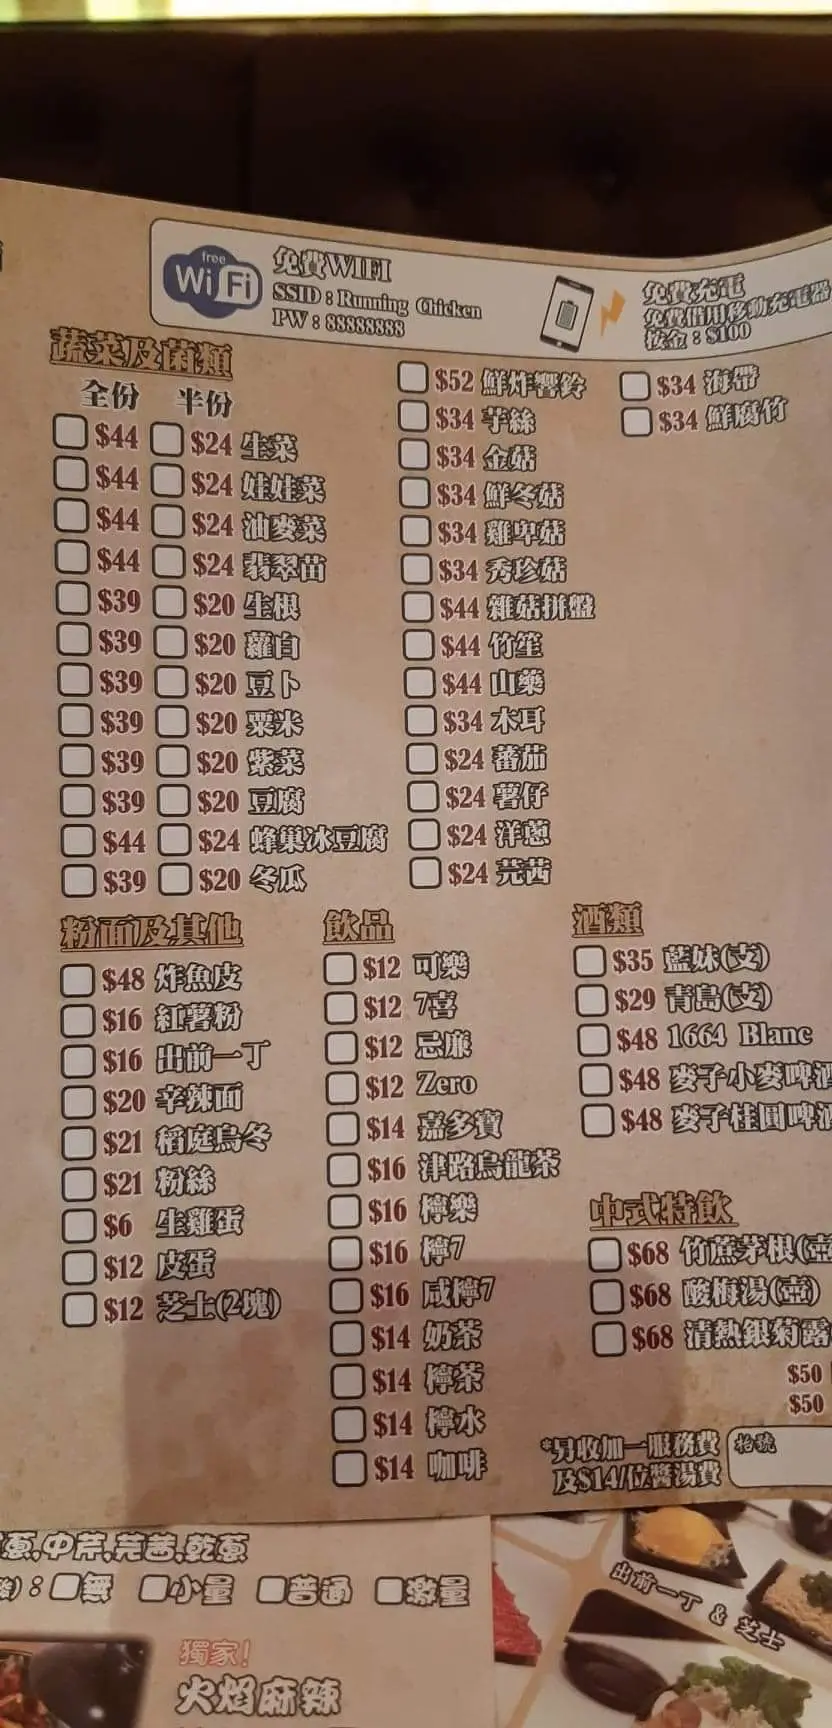 free
WiFi
免費WIFI
SSID : Running Chicken
PW : 88888888
免費充電
免費借用移動充電器
按金 : $100
蔬菜及菌類
全份 半份
$44 $24 生菜
$44 $24 娃娃菜
$44 $24 油麥菜
$44 $24 翡翠苗
$39 $20 生根
$39 $20 蘿白
$39 $20 豆卜
$39 $20 粟米
$39 $20 紫菜
$39 $20 豆腐
$44 $24 蜂巢冰豆腐
$39 $20 冬瓜
$52 鮮炸響鈴
$34 芋絲
$34 金菇
$34 鮮冬菇
$34 雞髀菇
$34 秀珍菇
$44 雜菇拼盤
$44 竹笙
$44 山藥
$34 木耳
$24 蕃茄
$24 薯仔
$24 洋蔥
$24 芫茜
$34 海帶
$34 鮮腐竹
粉面及其他
$48 炸魚皮
$16 紅薯粉
$16 出前一丁
$20 辛辣面
$21 稻庭烏冬
$21 粉絲
$6 生雞蛋
$12 皮蛋
$12 芝士(2塊)
飲品
$12 可樂
$12 7喜
$12 忌廉
$12 Zero
$14 嘉多寶
$16 津路烏龍茶
$16 檸樂
$16 檸7
$16 咸檸7
$14 奶茶
$14 檸茶
$14 檸水
$14 咖啡
酒類
$35 藍妹(支)
$29 青島(支)
$48 1664 Blanc
$48 麥子小麥啤酒
$48 麥子桂圓啤酒
中式特飲
$68 竹蔗茅根(壺
$68 酸梅湯(壺)
$68 清熱銀菊露
$50
$50
*另收加一服務費
及$14/位醬湯費
枱號
蔥,中芹,芫茜,乾蔥
: 無 小量 普通 激量
獨家!
火焰麻辣
出前一丁 & 芝士